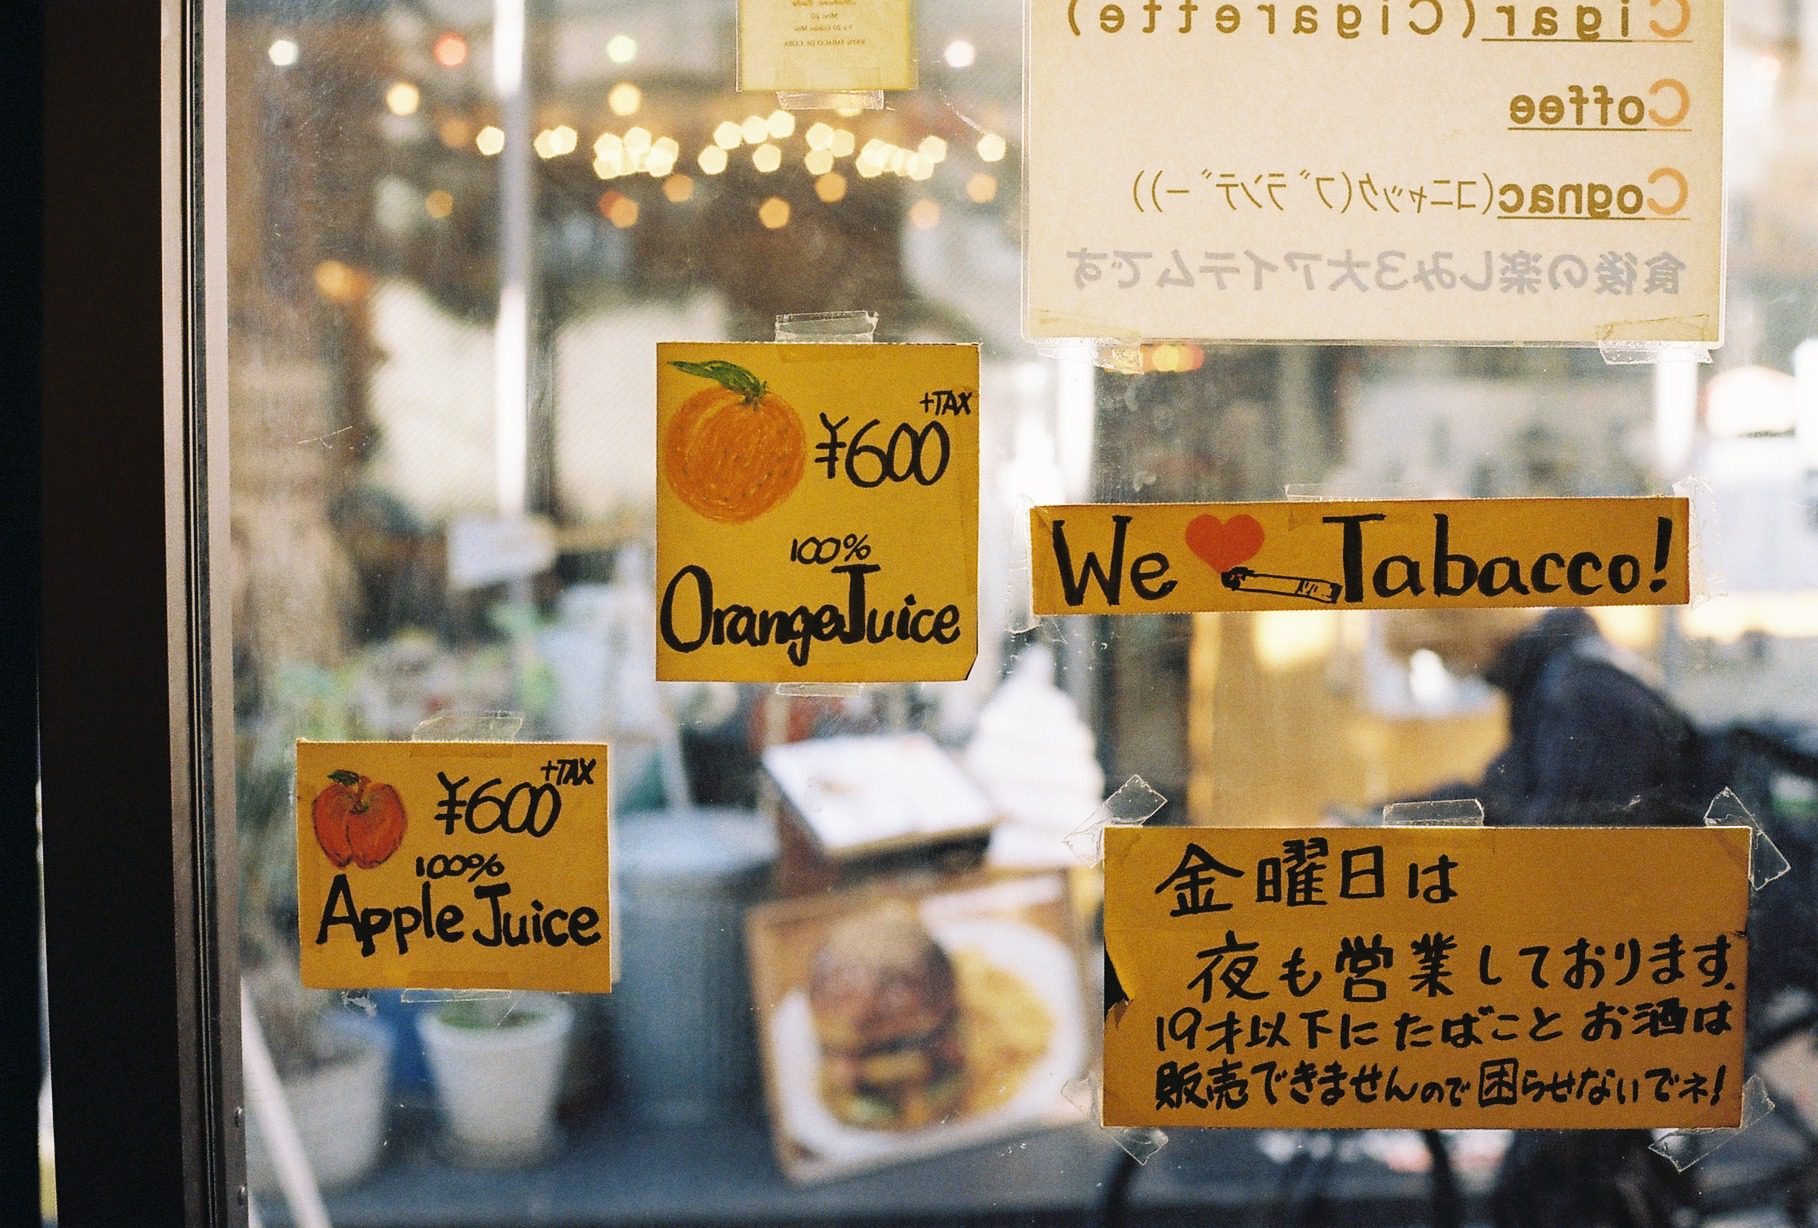 Cigar(Cigarette)
Coffee
Cognac(コニャック(ブランデー))
食後の楽しみ3大アイテムです
+TAX
¥600
100%
Orange Juice
We ♥ Tabacco!
+TAX
¥600
100%
Apple Juice
金曜日は
夜も営業しております。
19才以下にたばことお酒は
販売できませんので困らせないでネ!